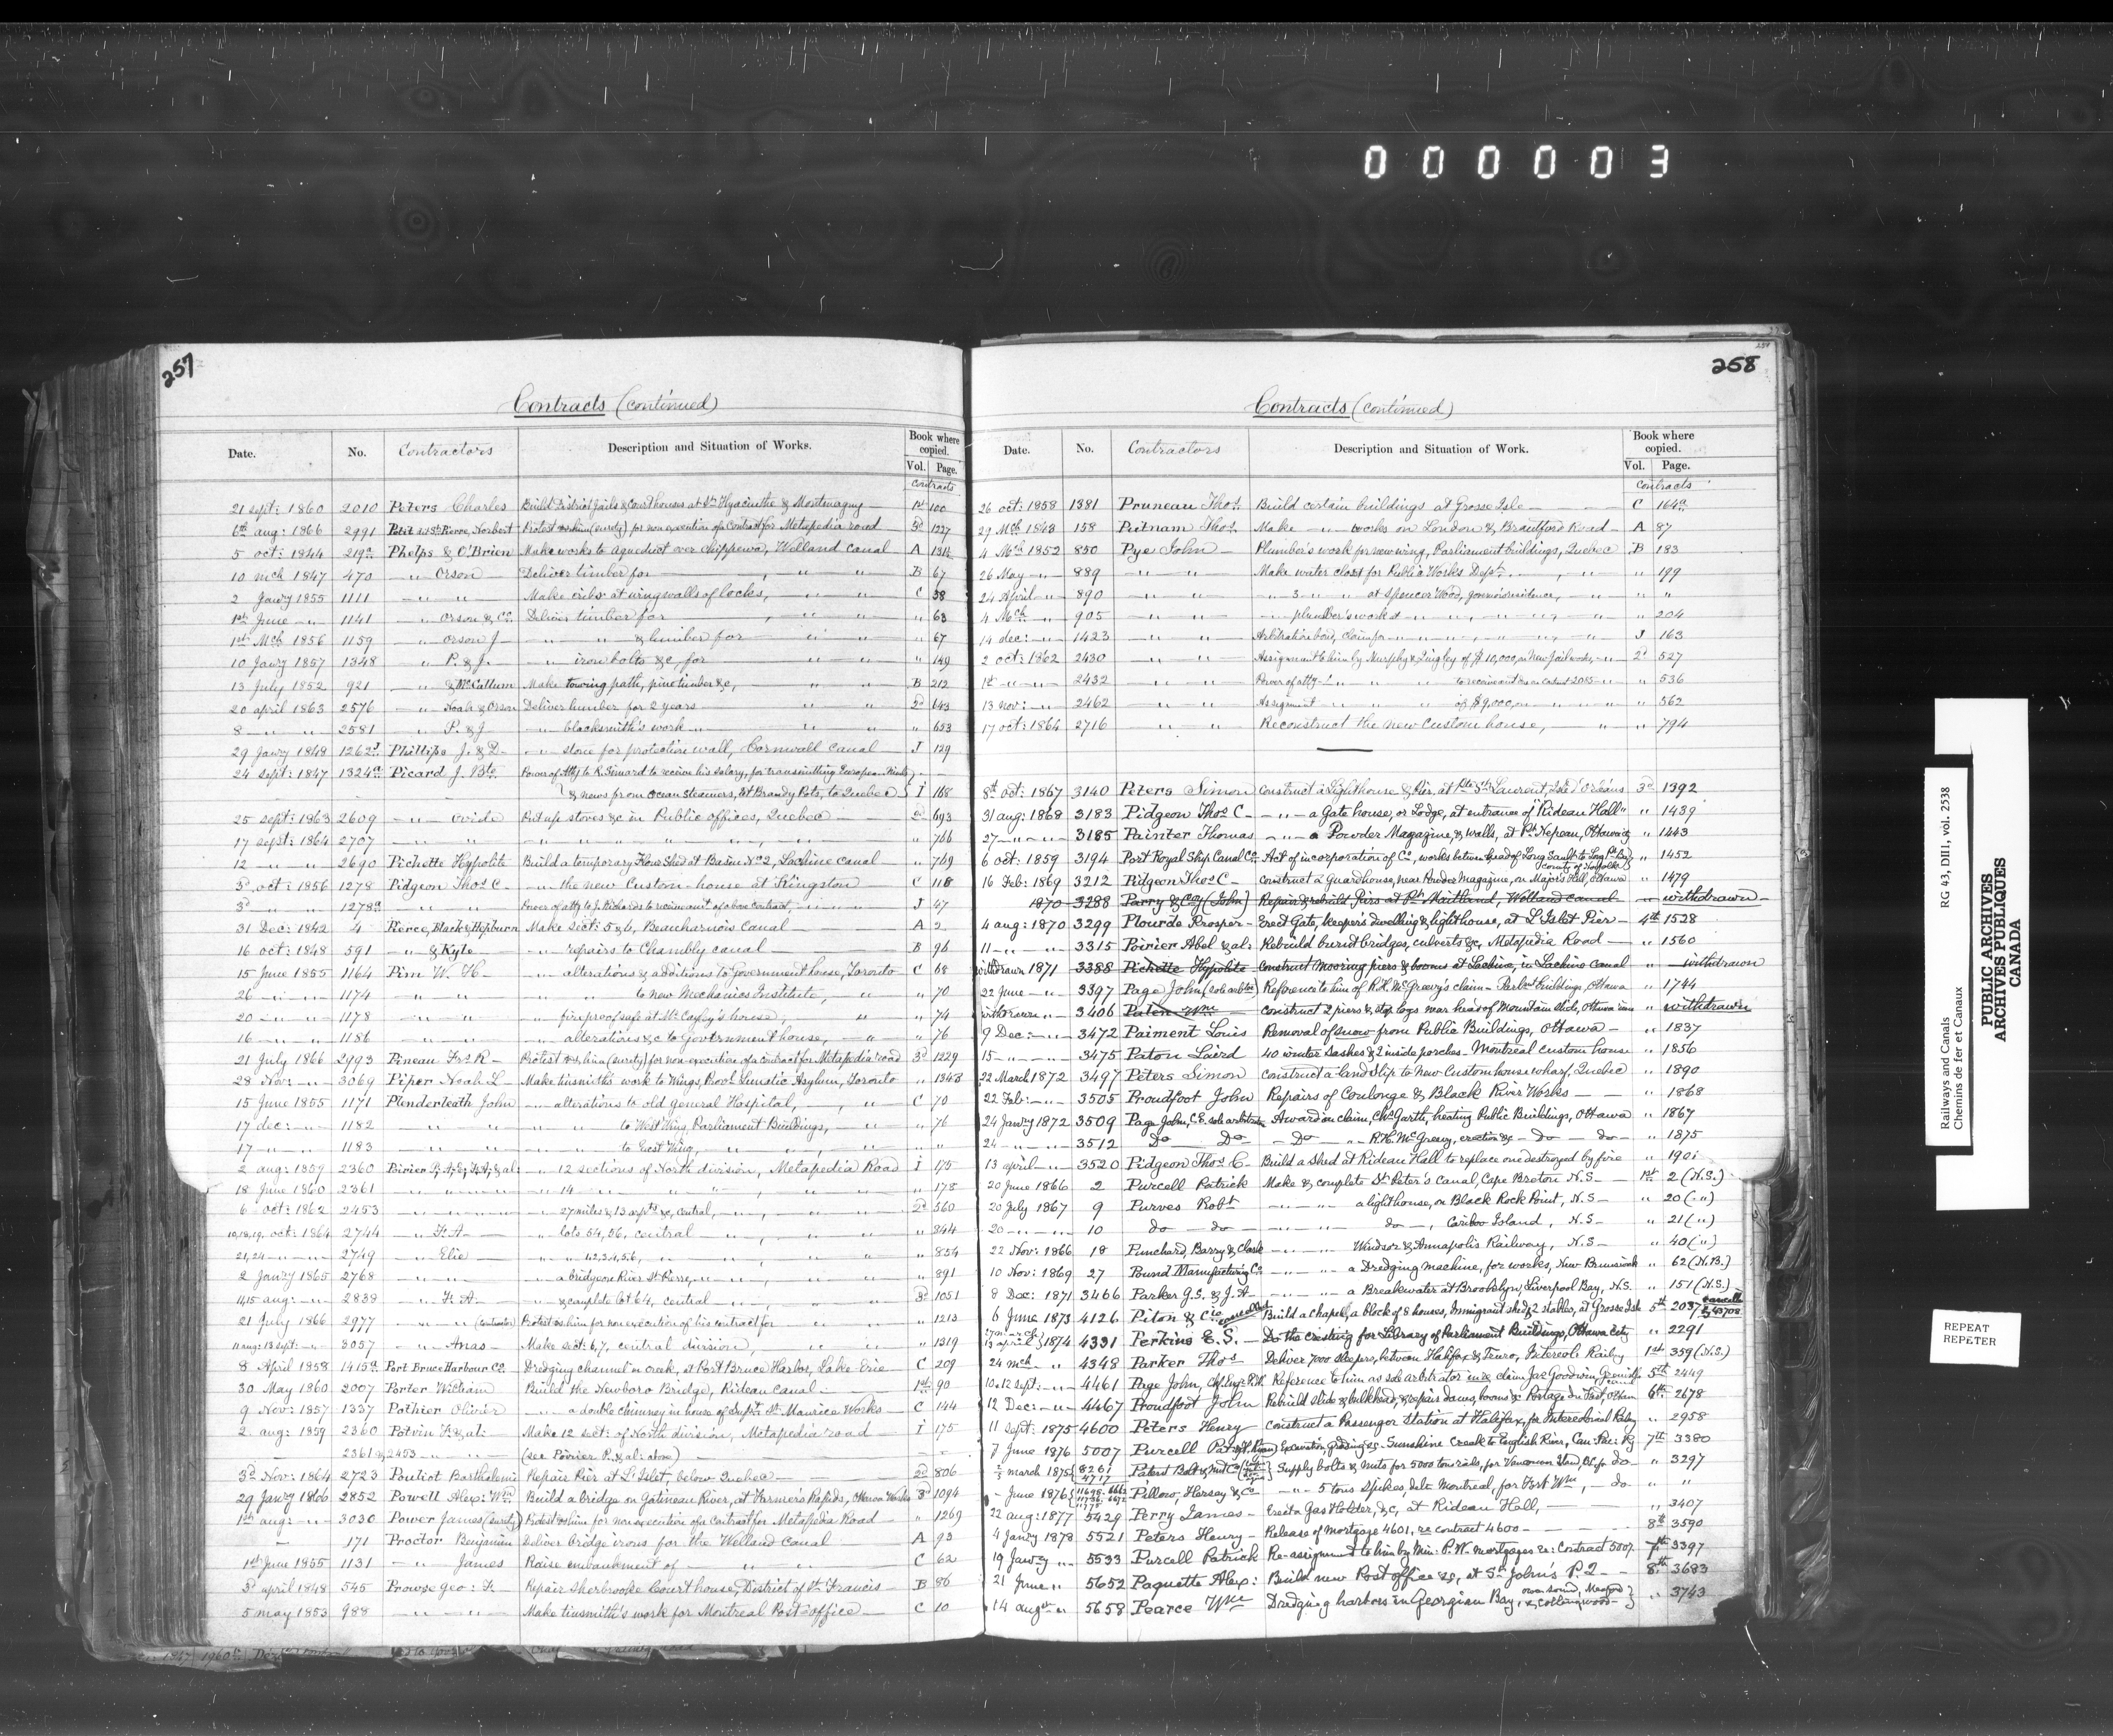 000003
257
Contracts (continued)
Date. No. Contractors Description and Situation of Works. Book where copied. Vol. Page.
Contracts
21 sept: 1860 2010 Peters Charles Build District Jails & Courthouses at St. Hyacinthe & Montmagny 1st 100
6th aug: 1866 2991 Petit dit St. Pierre, Norbert Protest vs him (surety) for non execution of a Contract for Metapedia road 3d 1227
5 oct: 1844 219a Phelps & O'Brien Make works to aqueduct over Chippewa, Welland Canal A 131
10 mch 1847 470 — " Orson Deliver timber for — , — " — " B 67
2 Jawy 1855 1111 — " — " — Make cribs at wing walls of locks, — " — " C 38
1st June — " — 1141 — " Orson & Co. Deliver timber for — , — " — " " 63
1st Mch 1856 1159 — " Orson J — — " — " & lumber for — " — " " 67
10 Jawy 1857 1348 — " P. & J. — " — iron bolts &c, for — " — " " 149
13 July 1852 921 — " & McCallum Make towing path, pine timber &c, " " B 212
20 april 1863 2576 — " Noah & Orson Deliver lumber for 2 years — " — " 2d 643
8 — " — " 2581 — " P. & J — " — blacksmith's work — " — " " 653
29 Jawy 1848 1262 Phillips J. & D. — " — stone for protection wall, Cornwall Canal J 129
24 sept: 1847 1324a Picard J. Bte. Power of Atty to R. Simard to receive his salary, for transmitting European Mails
& news from Ocean Steamers, at Brandy Pots, to Quebec I 168
25 sept: 1863 2609 — " — Ovide Put up stoves &c in Public offices, Quebec — 2d 693
17 sept: 1864 2707 — " — " — " " " " " , — " — " 766
12 — " — " 2690 Pichette Hypolite Build a temporary Flour Shed at Basin No. 2, Lachine Canal " 749
3d oct: 1856 1278 Pidgeon Thos. C. — " — the new Custom-house at Kingston C 118
3d — " — " 1278a — " — " Power of atty to J. Richards to receive amt. of above contract, — " — " J 47
31 Dec: 1842 4 Pierce, Black & Hepburn Make Sect: 5 & 6, Beauharnois Canal A 2
16 oct: 1848 591 — " & Kyle — " — repairs to Chambly canal B 96
15 June 1855 1164 Pim W. H. — " — alterations & additions to Government house, Toronto C 68
26 — " — " — 1174 — " — " — " — " to new Mechanics Institute, — " " 70
20 — " — " — 1178 — " — " — " — fireproof safe at Mr. Cayley's house, — " " 74
16 — " — " 1186 — " — " — " — alterations &c to Government house, — " " 76
21 July 1866 2993 Pineau Frs. R — Protest vs him (surety) for non-execution of a contract for Metapedia road 3d 1229
28 Nov: — " — 3069 Piper Noah L — Make tinsmith's work to Wings, Prov.l Lunatic Asylum, Toronto " 1348
15 June 1855 1171 Plenderleath John — " — alterations to old general Hospital, — , — " C 70
17 dec: — " — 1182 — " — " — " — " to West Wing, Parliament Buildings, — " " 76
17 — " — " 1183 — " — " — " — " to East Wing, " " " "
2 aug: 1859 2360 Poirier P., A., E., F. A., & al: — " 12 sections of North division, Metapedia Road I 175
18 June 1860 2361 — " — " — " — " 14 — " — " — " — " " 178
6 oct: 1862 2453 — " — " — " — " 27 miles & 13 arpts &c, central, — " — " 2d 560
10,18,19, oct: 1864 2744 — " F. A. — — " — lots 54, 56, central — " — " " 844
21,24 — " — " 2749 — " Elie — — " — " 1,2,3,4,5,6, — " — " — " " 854
2 Jawy 1865 2768 — " — " — " — a bridge on River St. Pierre, — " — " " 891
14,15 aug: — " — 2839 — " F. A. — — " & complete lot 64, central — " — " 3d 1051
21 July 1866 2977 — " — " (contractor) Protest vs him for non execution of his contract for — " — " " 1213
11 aug: 13 sept: — " — 3057 — " Anas — Make sect: 6, 7, central division, — " — " " 1319
8 April 1858 1415a Port Bruce Harbour Co. Dredging channel in creek, at Port Bruce Harbor, Lake Erie C 209
30 May 1860 2007 Porter William Build the Newboro Bridge, Rideau canal — 1st 90
9 Nov: 1857 1337 Pothier Olivier — " — a double chimney in house of Supt. St. Maurice Works C 144
2 aug: 1859 2360 Potvin F. & al: Make 12 sect: of North division, Metapedia road I 175
2361 & 2453 — " — " (see Poirier P. & al: above) — " —
3d Nov: 1864 2723 Pouliot Barthelemie Repair Pier at L'Islet, below Quebec — 2d 806
29 Jawy 1866 2852 Powell Alex: Wm. Build a bridge on Gatineau River, at Farmer's Rapids, Ottawa Works 3d 1094
1st aug: — " — 3030 Power James (surety) Protest vs him for non execution of a contract for Metapedia Road " 1269
— 171 Proctor Benjamin Deliver bridge irons for the Welland Canal A 93
1st June 1855 1131 — " — James Raise embankment of — " " " C 62
3d april 1848 545 Prowse Geo: F. — Repair Sherbrooke Court house, District of St. Francis B 86
5 may 1853 988 — " — " Make tinsmith's work for Montreal Post-office C 10
258
Contracts (continued)
Date. No. Contractors Description and Situation of Work. Book where copied. Vol. Page.
Contracts
26 oct: 1858 1381 Pruneau Thos. Build certain buildings at Grosse Isle C 164a
29 Mch 1843 158 Putnam Thos. Make — " works on London & Brantford Road A 87
4 Mch 1852 850 Pye John — Plumber's work for new wing, Parliament buildings, Quebec B 183
26 May — " — 889 — " — " Make water closet for Public Works Dept. — , — " " 199
24 April — " 890 — " — " — " 3 — " — " at Spencer Wood, governor's residence, — " " "
4 Mch — " 905 — " — " — " plumber's work at — " — " " 204
14 dec: — " — 1423 — " — " Arbitration bond, claim for — " — " J 163
2 oct: 1862 2430 — " — " Assignment to him by Murphy & Quigley of $10,000, on New Jail works, — " 2d 527
1st — " — " 2432 — " — " Power of atty — " — " to receive amt due on contract 2085 — " " 536
13 nov: — " 2462 — " — " Assignment " " of $9,000, on " " " 562
17 oct: 1864 2716 — " — " Reconstruct the new Custom house, " " 794
8th oct: 1867 3140 Peters Simon Construct a Lighthouse & Pier, at Pte St. Laurent, Isle d'Orleans 3d 1392
31 aug: 1868 3183 Pidgeon Thos. C — — " — a Gate house, or Lodge, at entrance of "Rideau Hall" " 1439
27 — " — " 3185 Painter Thomas — " — a Powder Magazine, & walls, at Pt. Nepean, Ottawa city " 1443
6 oct: 1859 3194 Port Royal Ship Canal Co. Act of incorporation of Co., works between head of Long Sault to Long Pt. Bay, county of Norfolk " 1452
16 Feb: 1869 3212 Pidgeon Thos. C — Construct a Guardhouse, near Powder Magazine, on Major's Hill, Ottawa " 1479
1870 3288 Parry & Coy (John) Repair & rebuild Piers at Pt. Maitland, Welland canal — withdrawn
4 aug: 1870 3299 Plourde Prosper — Erect Gate, keeper's dwelling & lighthouse, at L'Islet Pier 4th 1528
11 — " — " 3315 Poirier Abel & al: Rebuild burnt bridges, culverts &c, Metapedia Road " 1560
withdrawn 1871 3388 Pichette Hypolite Construct Mooring piers & booms at Lachine, in Lachine Canal " — withdrawn
22 June — " — 3397 Page John, (sole arb.tor) Reference to him of R. H. McGreevy's claim — Parlmt. Buildings, Ottawa " 1744
withdrawn — " 3406 Paten Wm. Construct 2 piers & stop logs near head of Mountain slide, Ottawa river " withdrawn
9 Dec: — " — 3472 Paiment Louis Removal of snow from Public Buildings, Ottawa — " 1837
15 — " — " 3475 Paton Laird 40 winter sashes & 2 inside porches — Montreal custom house " 1856
22 March 1872 3497 Peters Simon Construct a land slip to New Custom house wharf, Quebec " 1890
22 Feb: — " — 3505 Proudfoot John Repairs of Coulonge & Black River Works " 1868
24 Jawy 1872 3509 Page John, C.E. sole arbitrator Award on claim, Chs. Garth, heating Public Buildings, Ottawa " 1867
24 — " — " 3512 Do Do — Do — " R. H. McGreevy, erection &c — do — do — " 1875
13 april — " 3520 Pidgeon Thos. C. Build a shed at Rideau Hall to replace one destroyed by fire " 1901
20 June 1866 2 Purcell Patrick Make & complete St. Peter's Canal, Cape Breton N.S. 1st 2 (N.S.)
20 July 1867 9 Purves Robt — " — " a lighthouse, on Black Rock Point, N.S. " 20 ( " )
20 — " — " 10 do — do — — " — " do — , Caribou Island, N.S. " 21 ( " )
22 Nov: 1866 18 Punchard, Barry & Clark — " — " Windsor & Annapolis Railway, N.S " 40 ( " )
10 Nov: 1869 27 Pound Manufacturing Co. — " — " a Dredging machine, for works, New Brunswick " 62 (N.B.)
8 Dec: 1871 3466 Parker G.S. & J. A. — " — " a Breakwater at Brooklyn, Liverpool Bay, N.S. " 151 (N.S.)
6 June 1873 4126 Piton & Cie cancelled Build a chapel, a block of 8 houses, Immigrant shed, & 2 stables, at Grosse Isle 5th 2037 cancelled 43708
13 april 1874 4331 Perkins E. S. — Do the cresting for Library of Parliament Buildings, Ottawa city " 2291
24 mch — " 4348 Parker Thos Deliver 7000 sleepers, between Halifax & Truro, Intercol. Railwy 1st 359 (N.S.)
10 & 12 sept: — " 4461 Page John, Chf. Engr. P.W. Reference to him as sole arbitrator in re claim Jas Goodwin, Grenville canal 5th 2449
12 Dec: — " 4467 Proudfoot John Rebuild slide & bulkhead, & repair dams, booms & Portage du Fort, Ottawa 6th 2678
11 Sept: 1875 4600 Peters Henry — Construct a Passenger station at Halifax, for Intercolonial Railwy " 2958
7 June 1876 5007 Purcell Pat: & H. Ryan) Excavation, grading &c. Sunshine Creek to English River, Can: Pac: Ry 7th 3380
march 1875 8261 4717 Patent Bolt & Nut Co Supply bolts & nuts for 5000 tons rails, for Vancouver Island, B.C. for do — " 3297
— June 1876 Pillow, Hersey & Co — " — 5 tons spikes, dele Montreal, for Fort Wm, — do " "
22 aug: 1877 5429 Perry James — Erect a Gas Holder, &c, at Rideau Hall, — " 3407
4 Jawy 1878 5521 Peters Henry — Release of Mortgage 4601, re contract 4600 — 8th 3590
19 Jawy — " 5533 Purcell Patrick Re-assignment to him by Min: P.W. mortgages re: Contract 5007 7th 3397
21 June — " 5652 Paquette Alex: Build new Post office &c, at St John's P.Q. 8th 3683
14 augst — " 5658 Pearce Wm Dredging harbors in Georgian Bay, Owen Sound, Meaford & Collingwood — " 3743
Railways and Canals RG 43, DIII, vol. 2538
Chemins de fer et Canaux
PUBLIC ARCHIVES
ARCHIVES PUBLIQUES
CANADA
REPEAT
REPÉTER